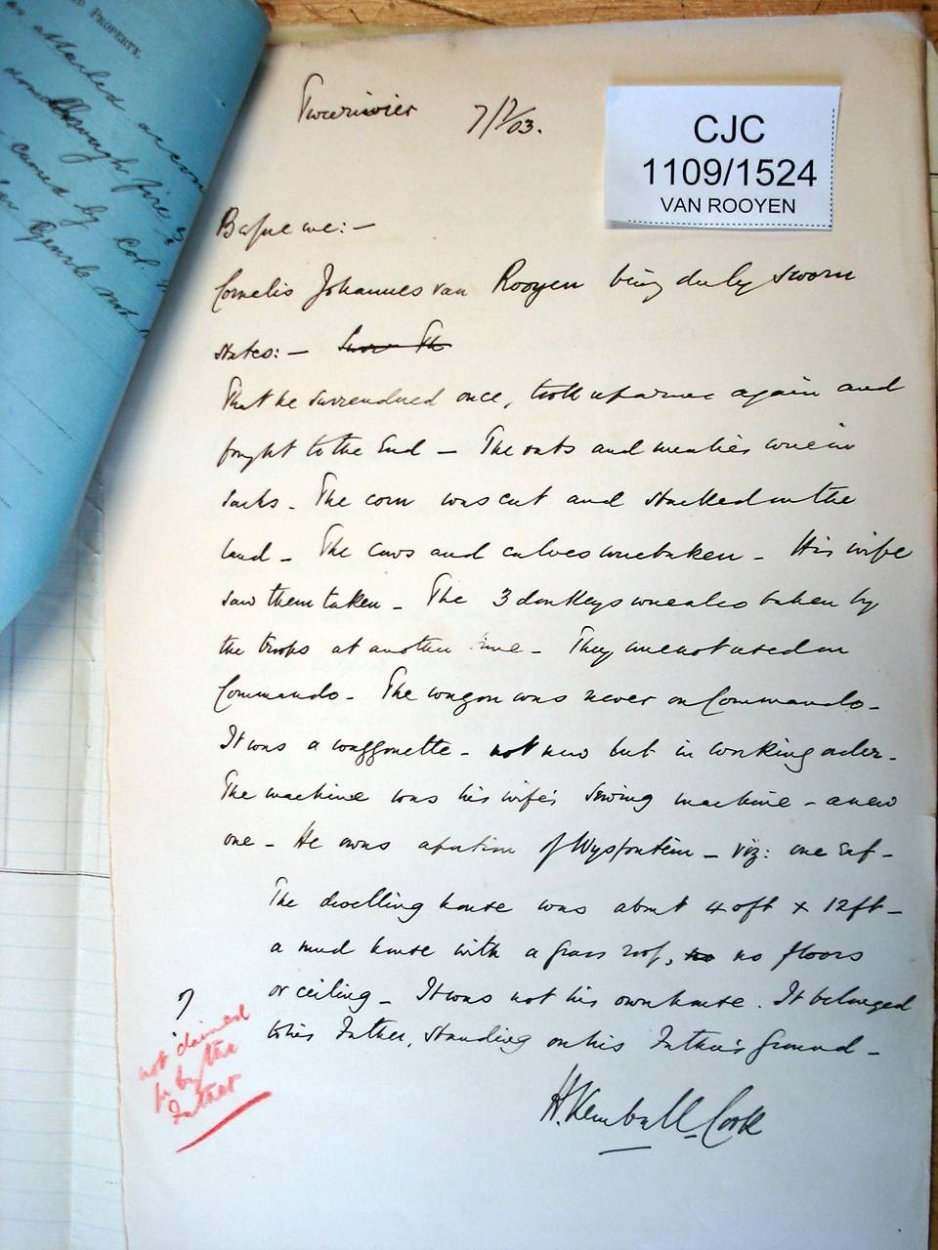 PROPERTY.
attached
through fire
caused by Col.
not
7/7/03.
CJC
1109/1524
VAN ROOYEN
Before me:—
Cornelis Johannes van Rooyen being duly sworn
states:—
That he surrendered once, took up arms again and
fought to the End — The oats and mealies were in
sacks. The corn was cut and stacked on the
land — The cows and calves were taken — His wife
saw them taken — The 3 donkeys were also taken by
the troops at another time — They were not used on
Commando — The wagon was never on Commando —
It was a waggonette — not new but in working order —
The machine was his wife's sewing machine — a new
one — He owns a portion of Wysfontein — viz: one Erf —
The dwelling house was about 40ft x 12ft —
a mud house with a grass roof, no no floors
or ceiling — It was not his own house. It belonged
to his Father, standing on his Father's ground —
?
not claimed
for by the
Father
H. Kemball-Cook